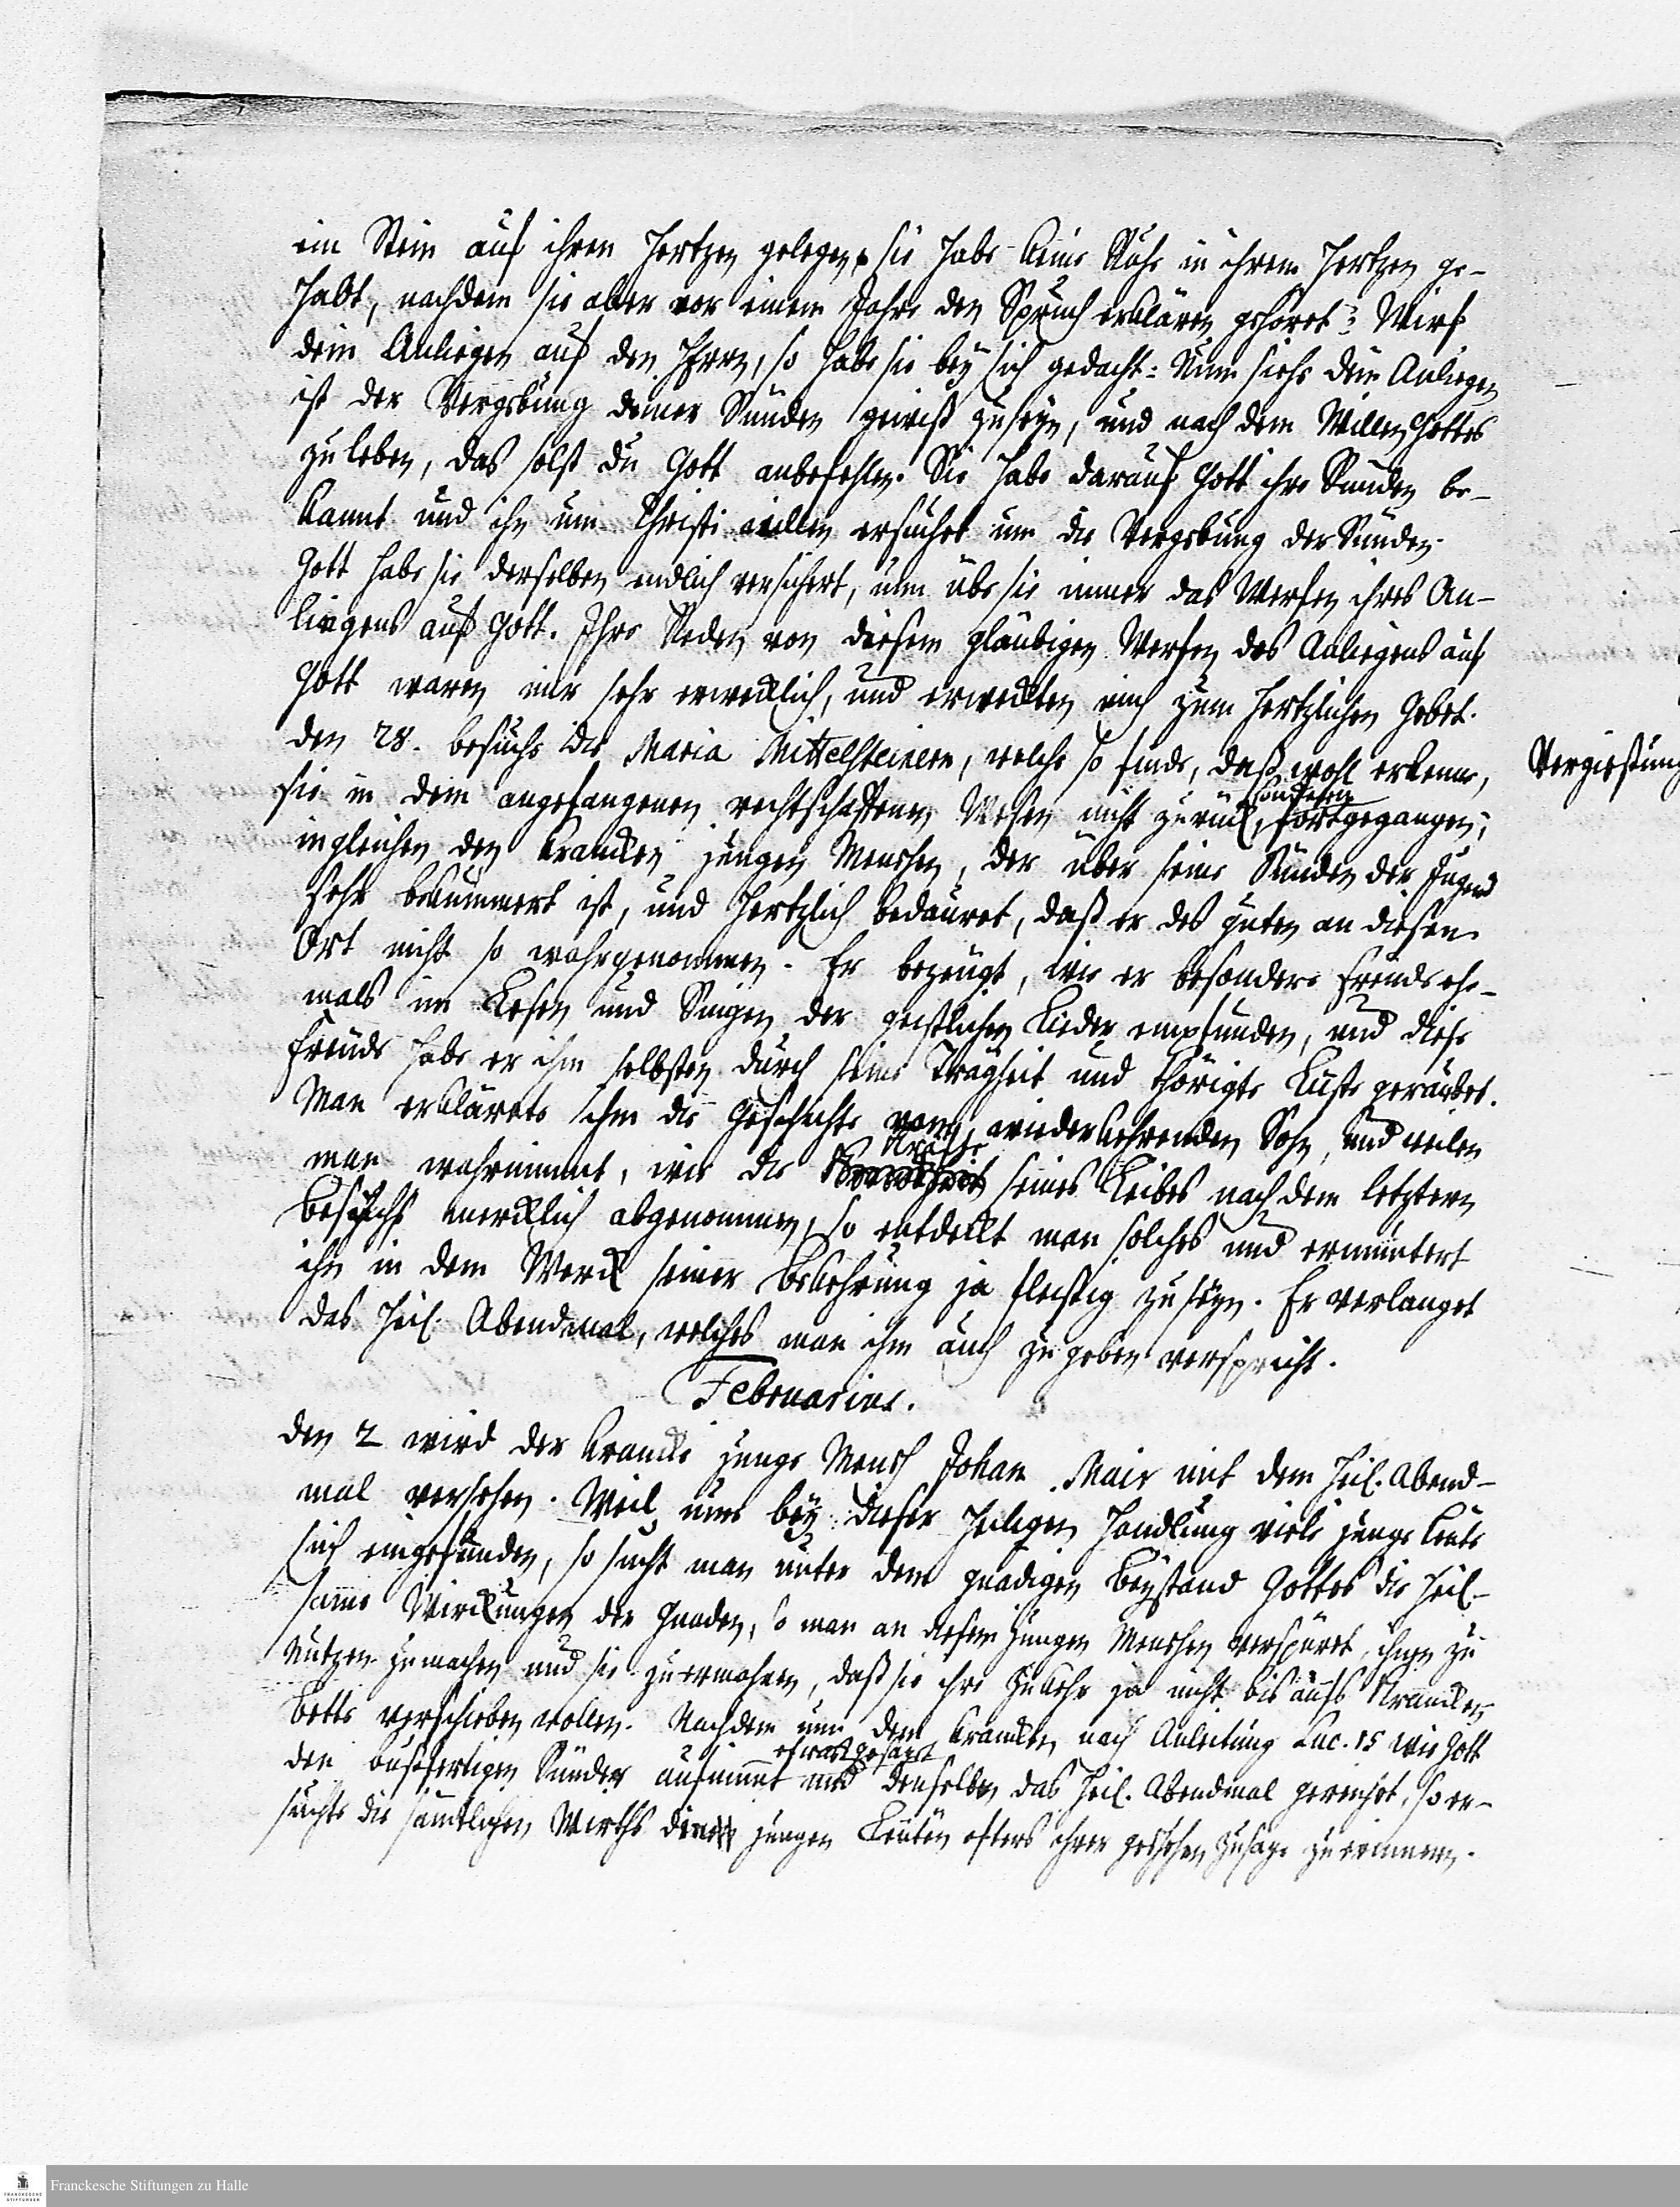 ein Stein auf ihrem Hertzen gelegen, sie habe keine Ruhe in ihrem Hertzen ge-
habt, nachdem sie aber vor einem Jahre den Spruch erklären gehöret: Wirf
dein Anliegen auf den HErrn, so habe sie bey sich gedacht: Nun siehe dein Anliegen
ist der Vergebung deiner Sünden gewiß zu seyn, und nach dem Willen Gottes
zu leben, das solst du Gott anbefehlen. Sie habe darauf Gott ihre Sünden be-
kannt und ihn um Christi willen ersuchet um die Vergebung der Sünden.
Gott habe sie derselben endlich versichert, nun übe sie immer das Werfen ihres An-
liegens auf Gott. Ihre Reden von diesem gläubigen Werfen des Anliegens auf
Gott waren mir sehr erwecklich, und erweckten mich zum hertzlichen Gebet.
den 28. besuche die Maria Mittelsteinern, welche so finde, daß wohl erkenne,
sie in dem angefangenen rechtschaffenen Wesen nicht zurück, sondern fortgegangen;
ingleichen den krancken jungen Menschen, der über seine Sünden der Jugend
sehr bekümmert ist, und hertzlich bedauret, daß er des guten an diesem
Ort nicht so wahrgenommen. Er bezeugt, wie er besondere Freude ehe-
mals im Lesen und Singen der geistlichen Lieder empfunden, und diese
Freude habe er ihm selbsten durch seine Trägheit und thörigte Lüste geraubet.
Man erklärete ihm die Geschichte vom wiederkehrenden Sohn, und weilen
man wahrnimmt, wie die Kräffte seines Leibes nach dem letztern
Besuche mercklich abgenommen, so entdeckt man solches und ermuntert
ihn in dem Werck seiner Bekehrung ja fleißig zu seyn. Er verlanget
das Heil. Abendmal, welches man ihm auch zu geben verspricht.
Februarius.
den 2 wird der krancke junge Mensch Johan Mair mit dem Heil. Abend-
mal versehen. Weil nun bey dieser heiligen Handlung viele junge Leute
sich eingefunden, so sucht man unter dem gnädigen Beystand Gottes die heil-
same Wirckungen der Gnaden, so man an diesem jungen Menschen verspüret, ihnen zu
Nutzen zu machen und sie zu ermahnen, daß sie ihre Zukehr ja nicht bis aufs Krancken
bette verschieben wollen. Nachdem nun dem Krancken nach Anleitung Luc. 15 wie Gott
den bußfertigen Sünder aufnimmt etwas gesaget und denselben das Heil. Abendmal gereichet, so er-
suchte die sämtlichen Wirths jungen Leuten öfters ihrer geschehen Zusage zu erinnern.
Vergießung
Franckesche Stiftungen zu Halle